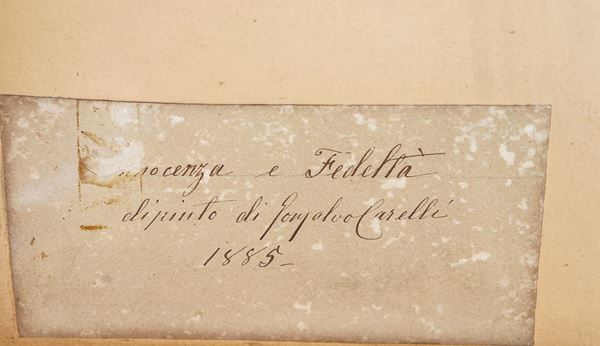 nnocenza e Fedeltà
dipinto di Gonsalvo Carelli
1885-